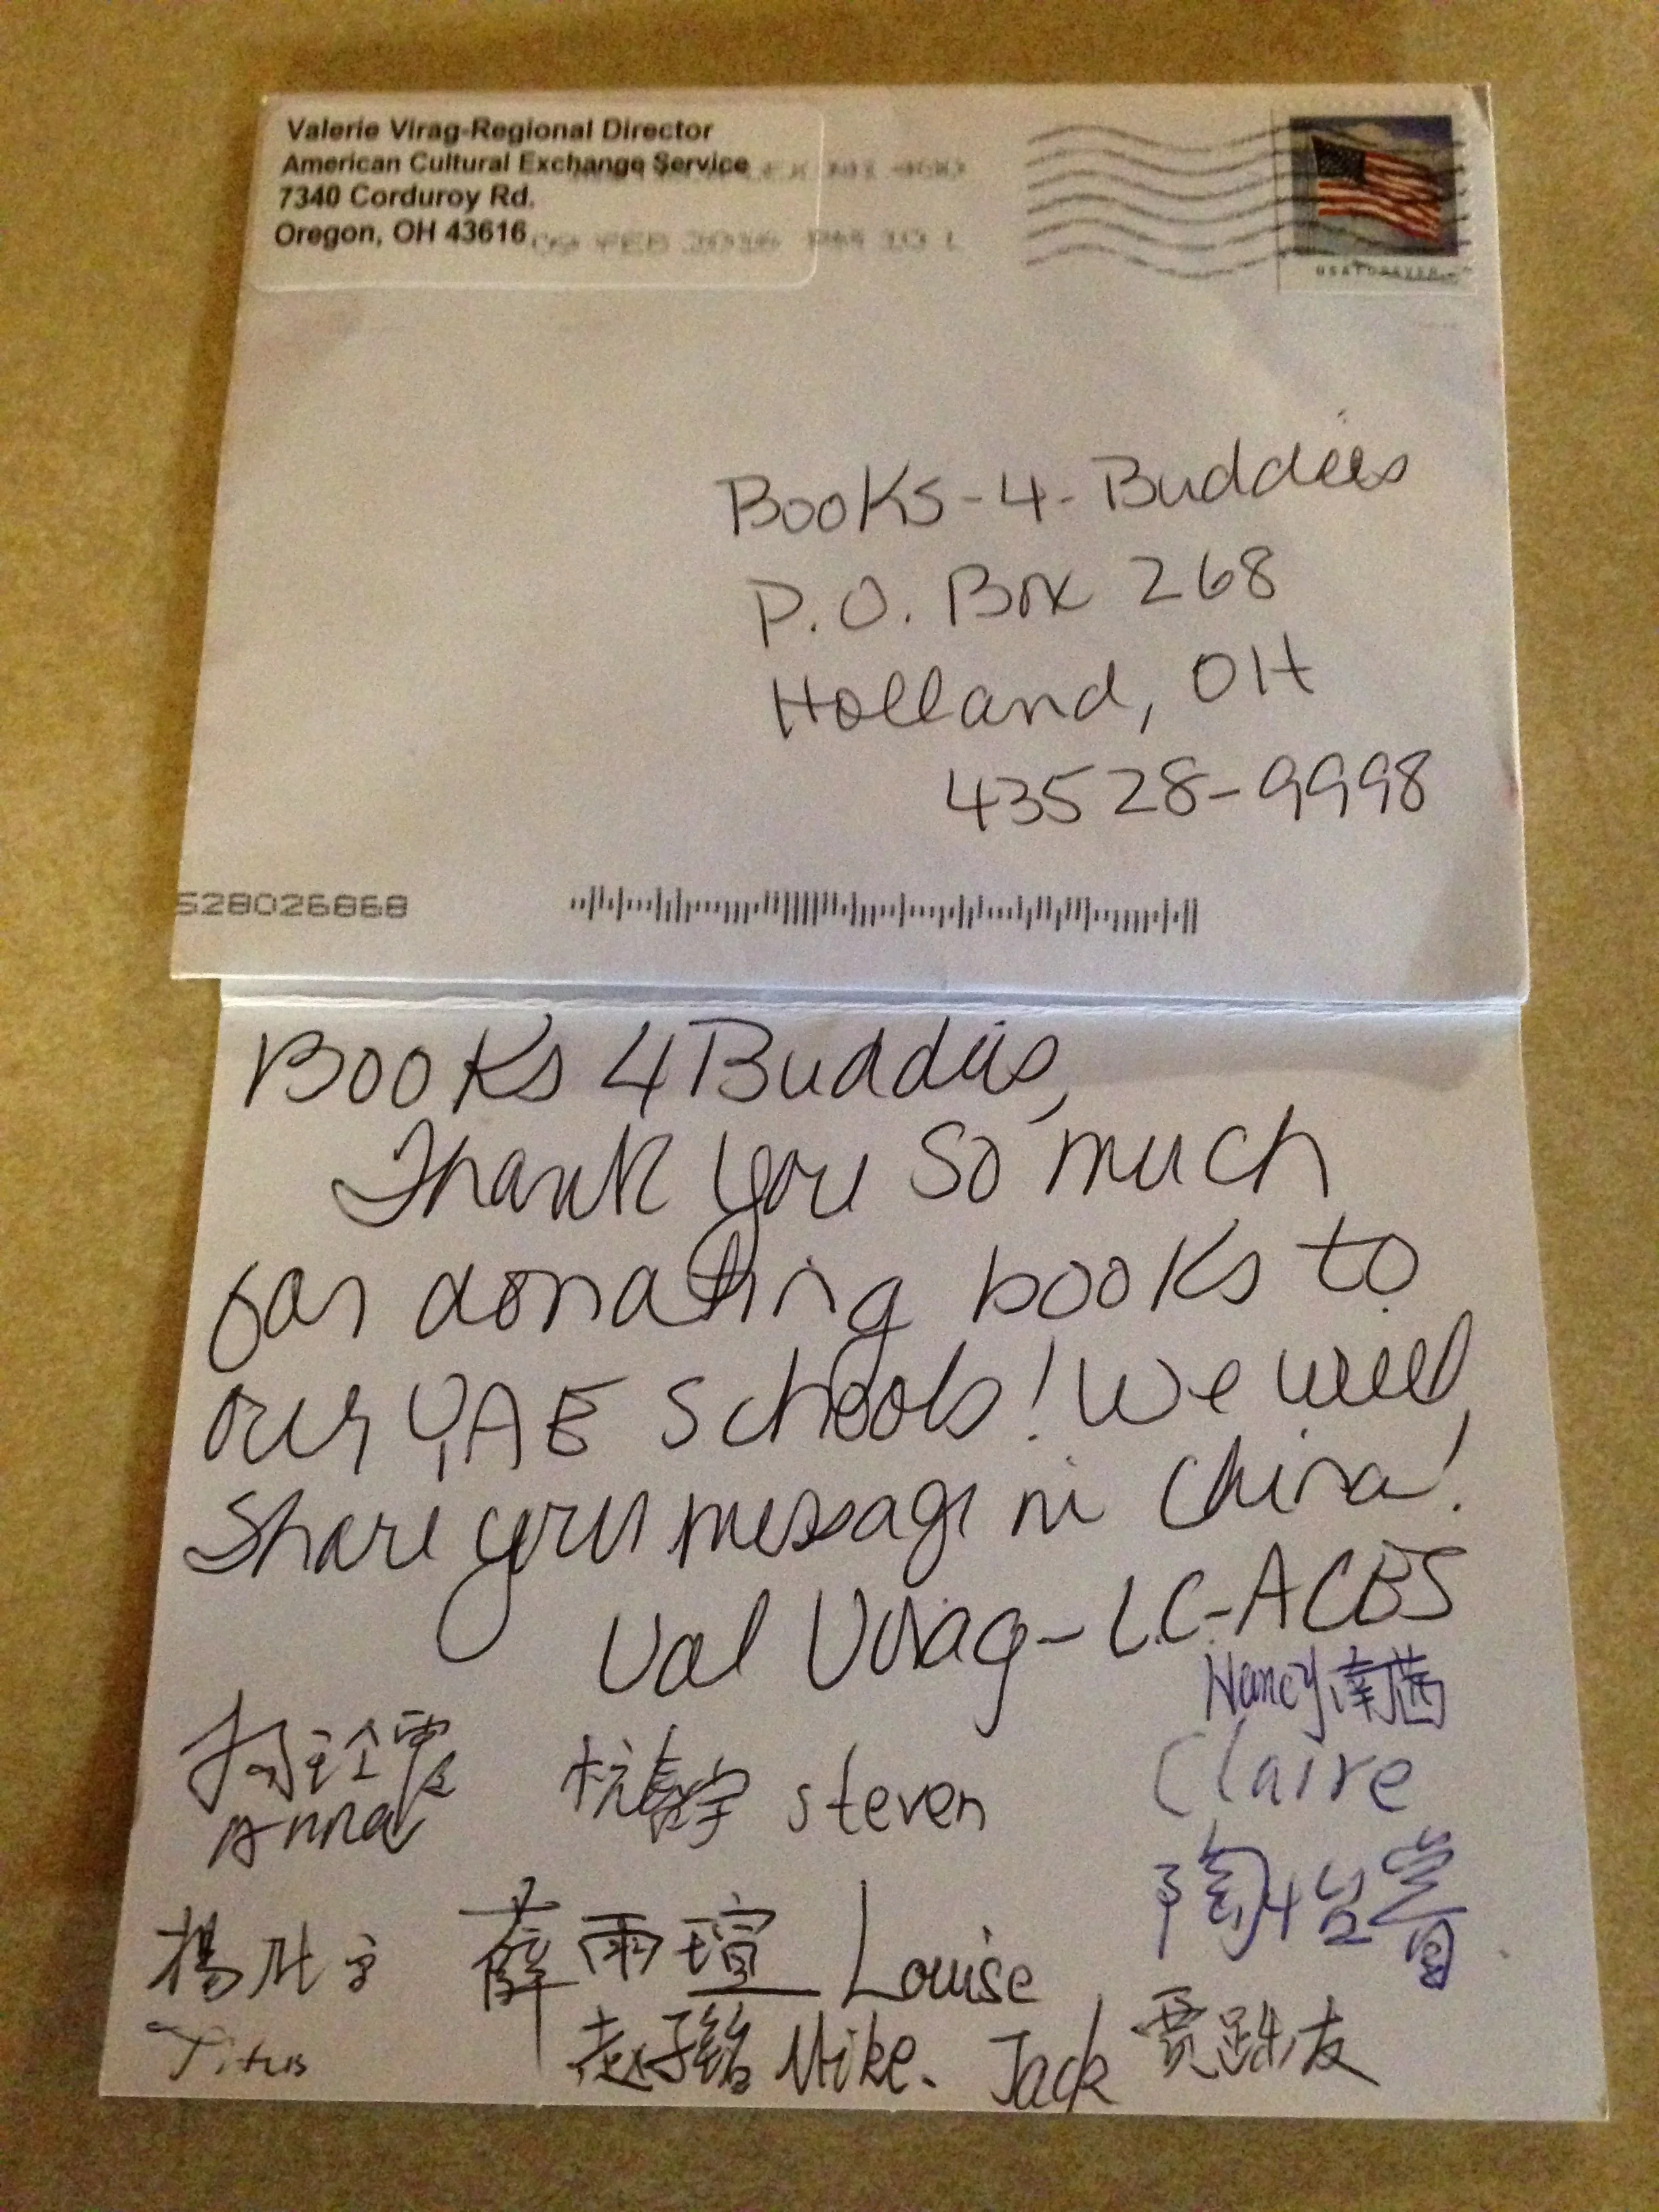 Valerie Virag-Regional Director
American Cultural Exchange Service
7340 Corduroy Rd.
Oregon, OH 43616
09 FEB 2016 PM 10 L
USA FOREVER
Books-4-Buddies
P.O. Box 268
Holland, OH
43528-9998
528026868
Books 4 Buddies,
Thank you so much
for donating books to
our YAE schools! We will
share your message in China!
Val Virag-LC-ACES
Nancy 南茜
Claire
Anna
杭 宇 steven
陶怡
楊 宇
薛雨瑄 Louise
Titus
赵子铭 Mike. Jack 贾 友